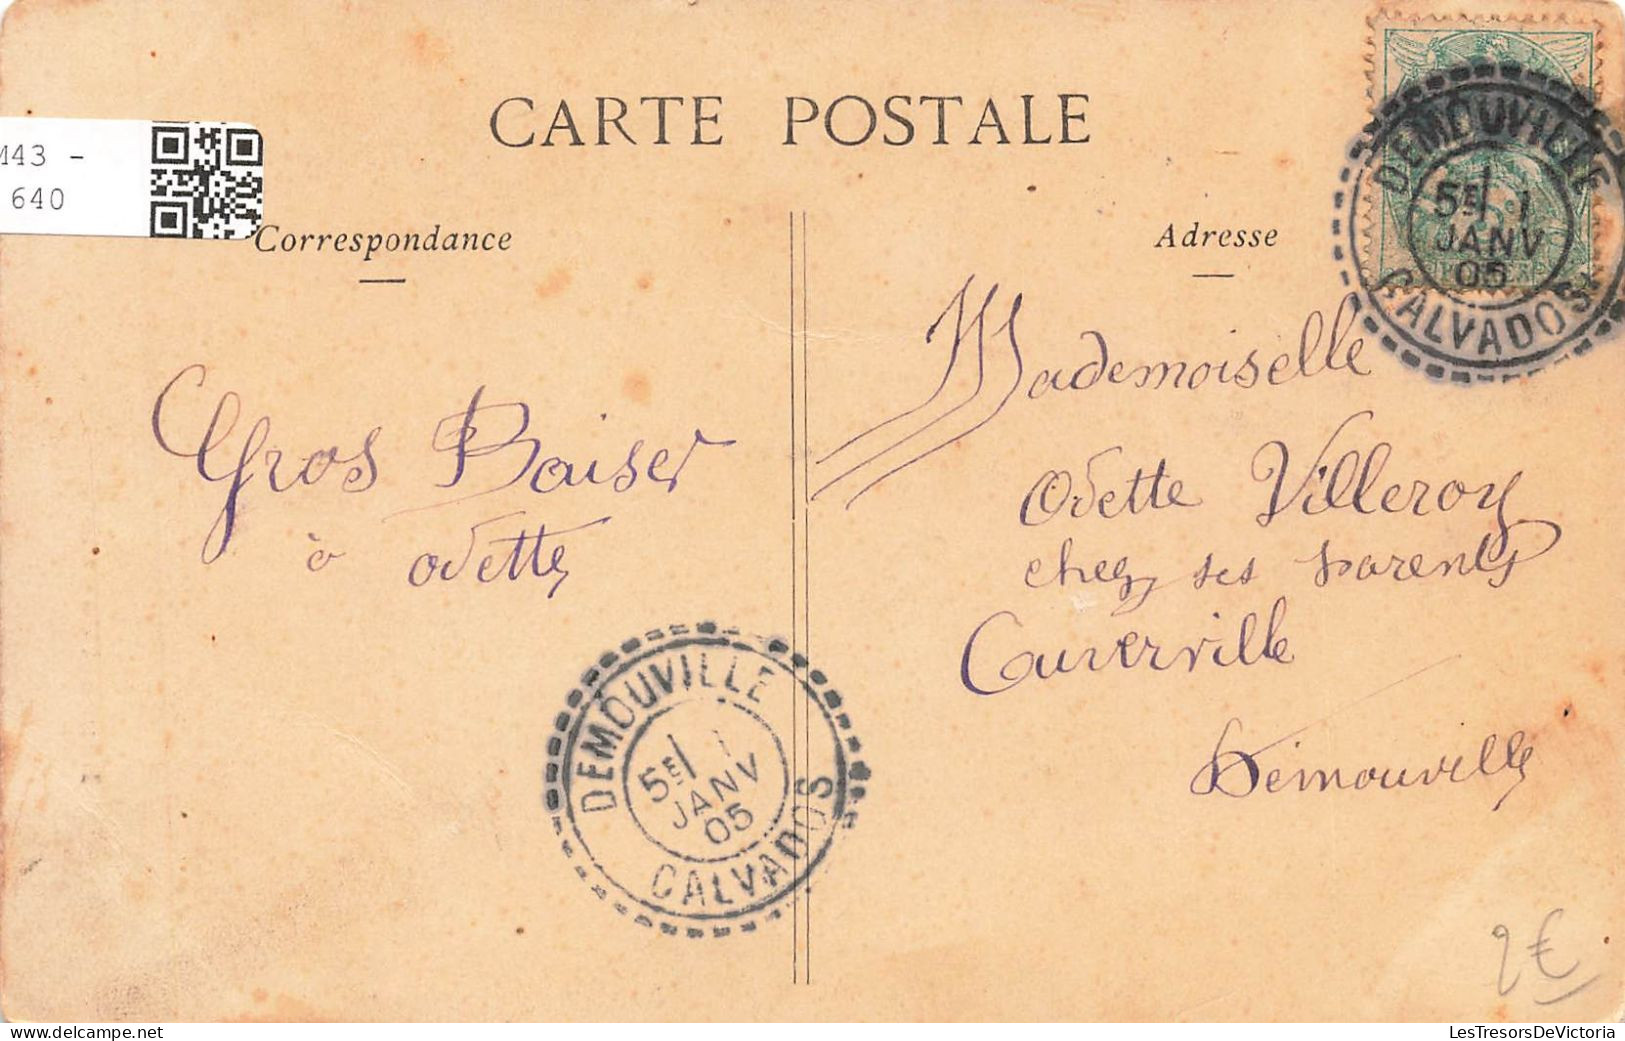 CARTE POSTALE
M43 -
640
Correspondance
Adresse
DEMOUVILLE
5E 1
JANV
05
CALVADOS
Mademoiselle
Odette Villeroy
chez ses parents
Cuverville
Démouville
Gros Baiser
à odette
DEMOUVILLE
5E 1
JANV
05
CALVADOS
2€
LesTresorsDeVictoria